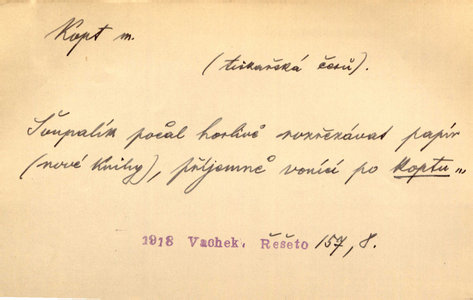 Kopt m.
(tiskařská čerň).
Šňupalík počal horlivě rozřezávat papír
(nové knihy), příjemně vonící po koptu„
1918 Vachek. Řešeto 157, 8.